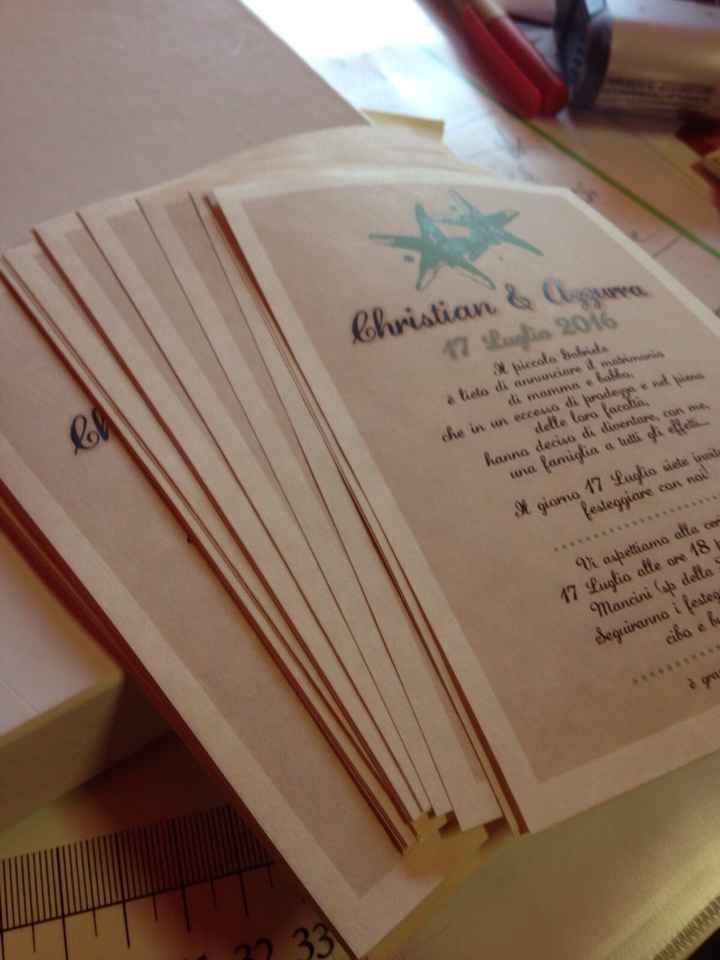 Christian & Azzurra
17 Luglio 2016
Il piccolo Gabriele
è lieto di annunciare il matrimonio
di mamma e babbo,
che in un eccesso di prodezza e nel pieno
delle loro facoltà,
hanno deciso di diventare, con me,
una famiglia a tutti gli effetti...
Il giorno 17 Luglio siete invita
festeggiare con noi!
Vi aspettiamo alla cer
17 Luglio alle ore 18 p
Mancini (sp della
Seguiranno i festeg
cibo e bu
è gra
Ch
32 33